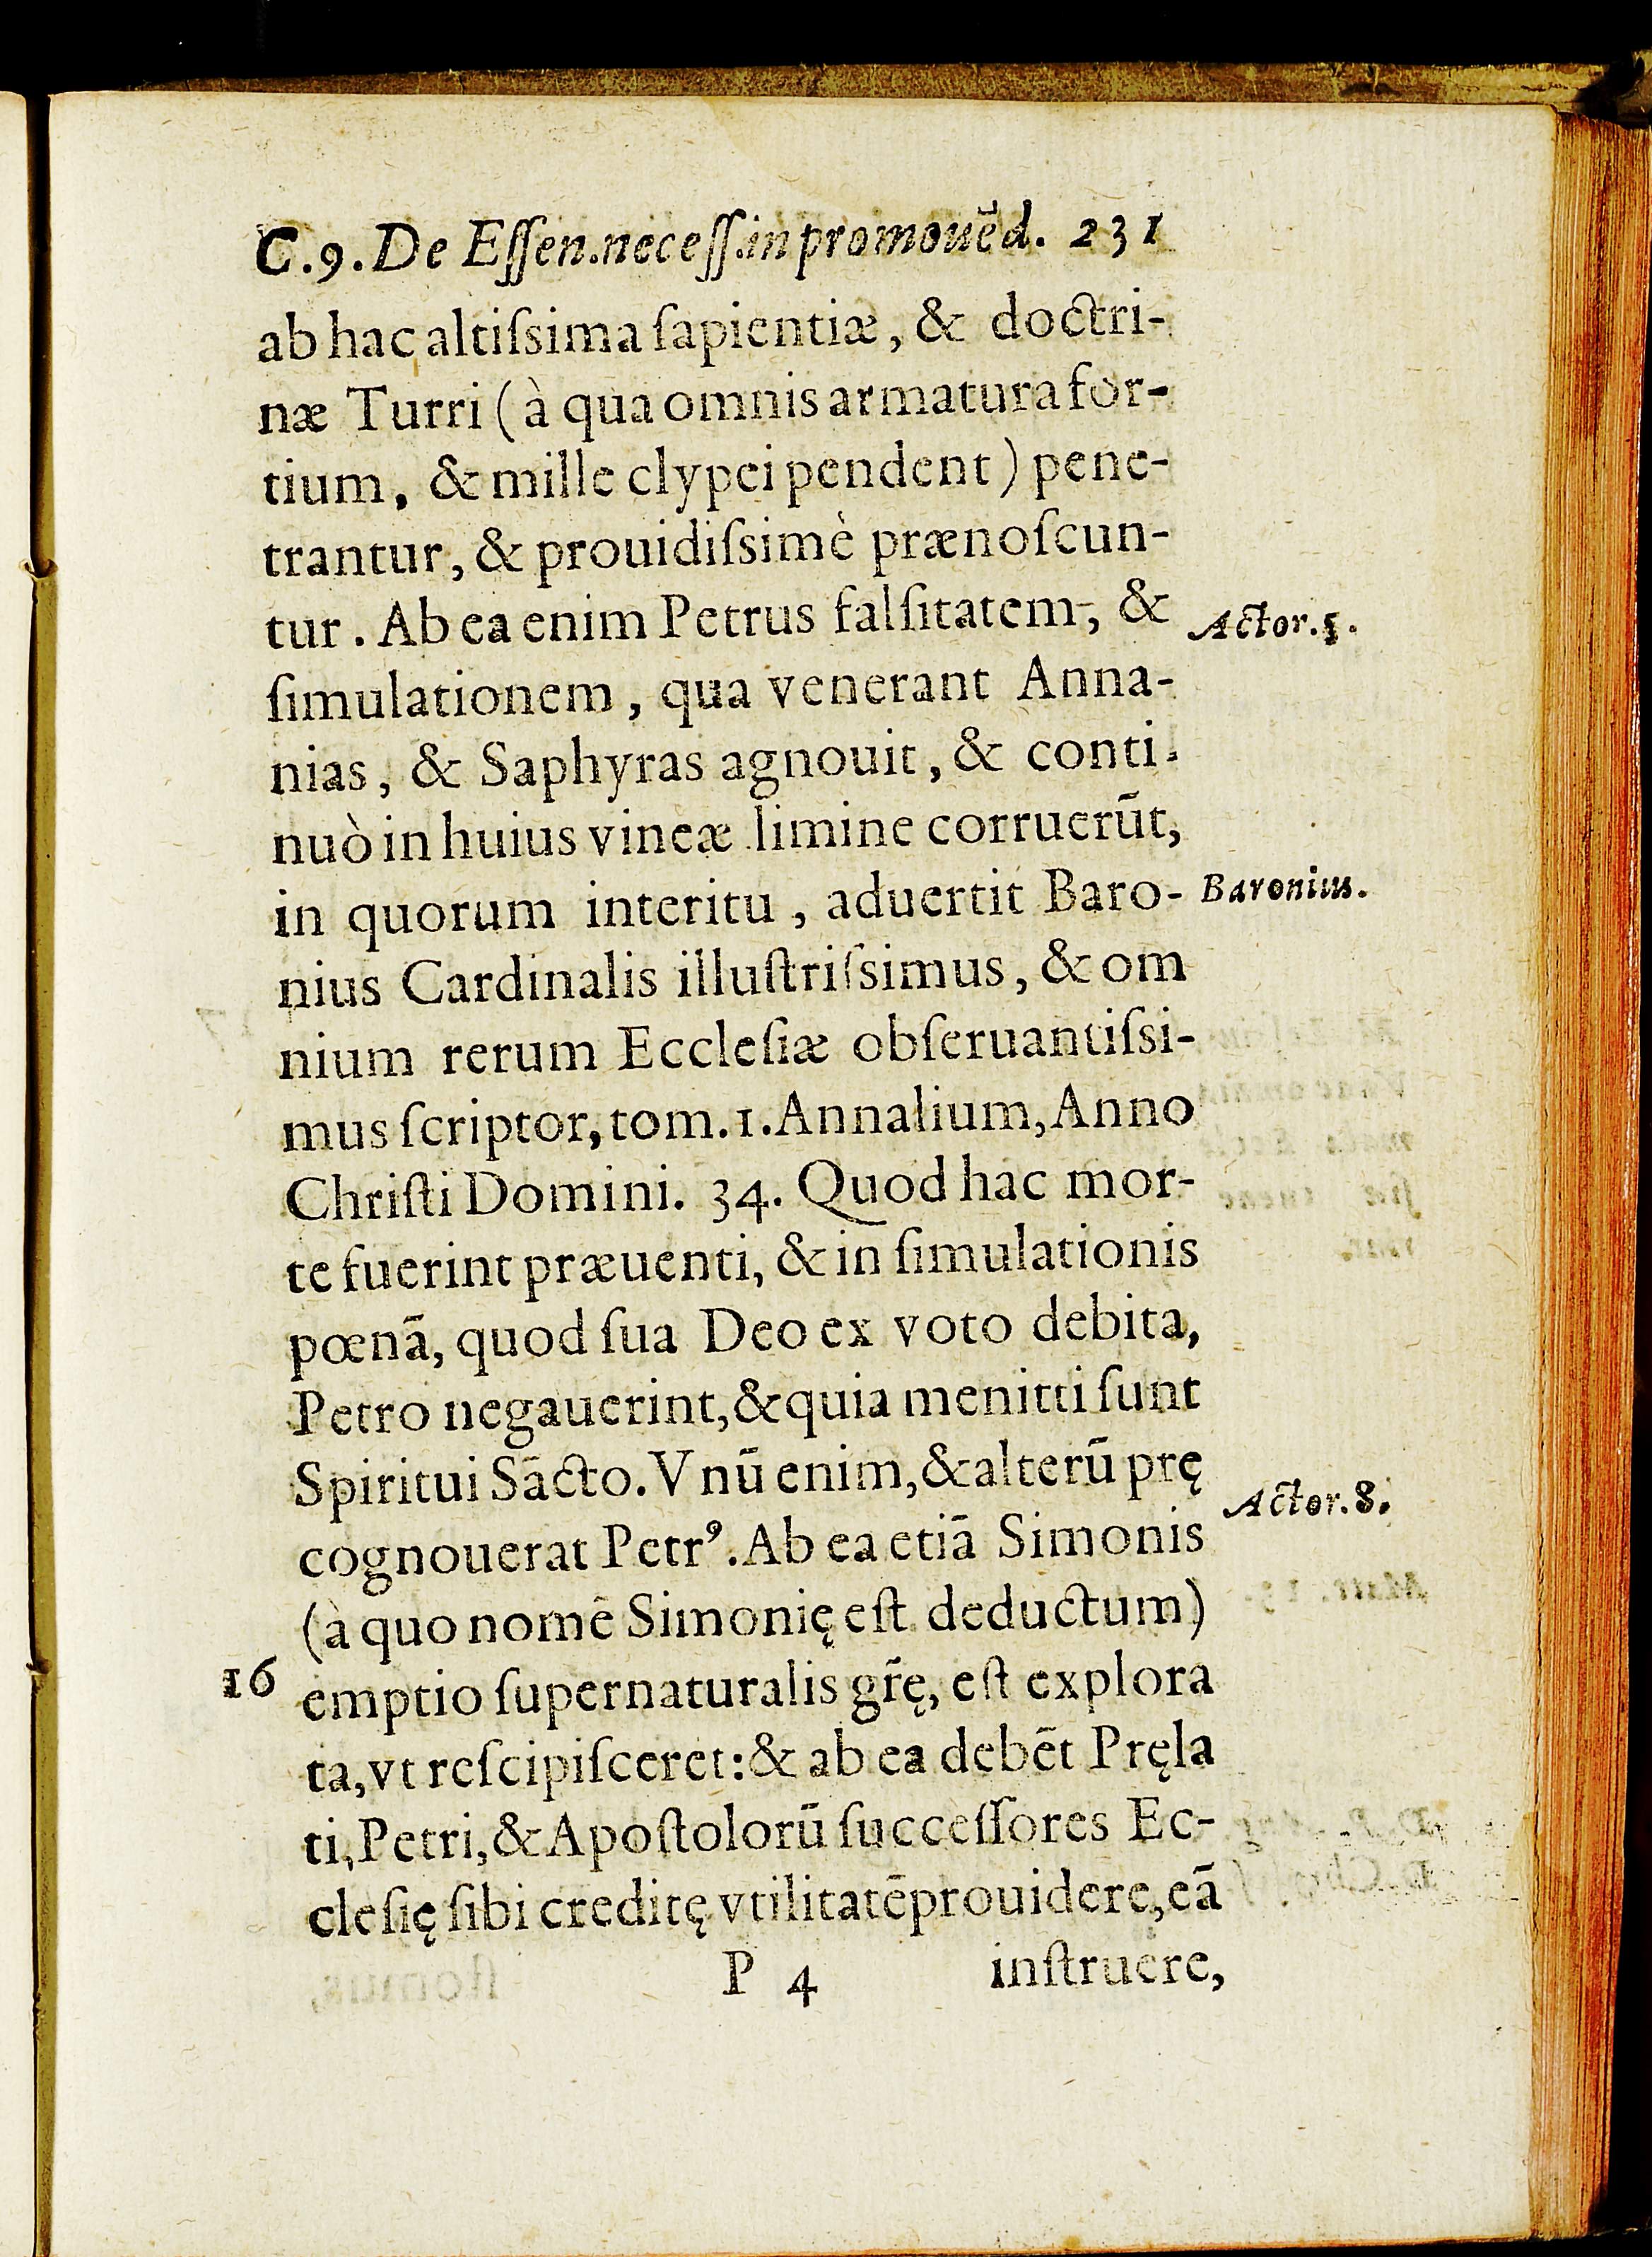 C.9. De Eſſen.neceſſ.in promouēd. 231
ab hac altiſsima ſapientiæ, & doctri-
næ Turri (à qua omnis armatura for-
tium, & mille clypei pendent) pene-
trantur, & prouidiſsimè prænoſcun-
tur. Ab ea enim Petrus falſitatem, &
Actor.5.
ſimulationem, qua venerant Anna-
nias, & Saphyras agnouit, & conti-
nuò in huius vineæ limine corruerūt,
in quorum interitu, aduertit Baro-
Baronius.
nius Cardinalis illuſtriſsimus, & om
nium rerum Eccleſiæ obſeruantiſsi-
mus ſcriptor, tom.1. Annalium, Anno
Chriſti Domini. 34. Quod hac mor-
te fuerint præuenti, & in ſimulationis
pœnā, quod ſua Deo ex voto debita,
Petro negauerint, & quia menitti ſunt
Spiritui Sācto. Vnū enim, & alterū prę
cognouerat Petrꝰ. Ab ea etiā Simonis
Actor.8.
(à quo nomē Simonię eſt deductum)
16 emptio ſupernaturalis gr̃ę, eſt explora
ta, vt reſcipiſceret: & ab ea debēt Pręla
ti, Petri, & Apoſtolorū ſucceſſores Ec-
cleſię ſibi creditę vtilitatē prouidere, eā
P 4 inſtruere,